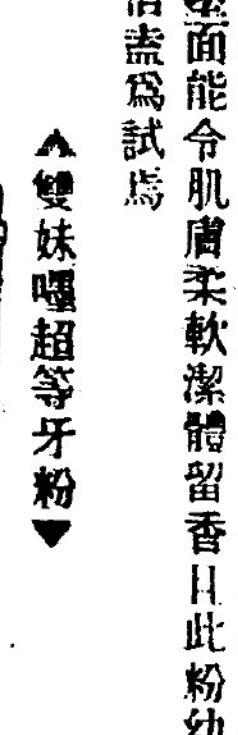 面能令肌膚柔軟潔體留香且此粉幼
盍爲試焉
▲雙妹嚜超等牙粉▼